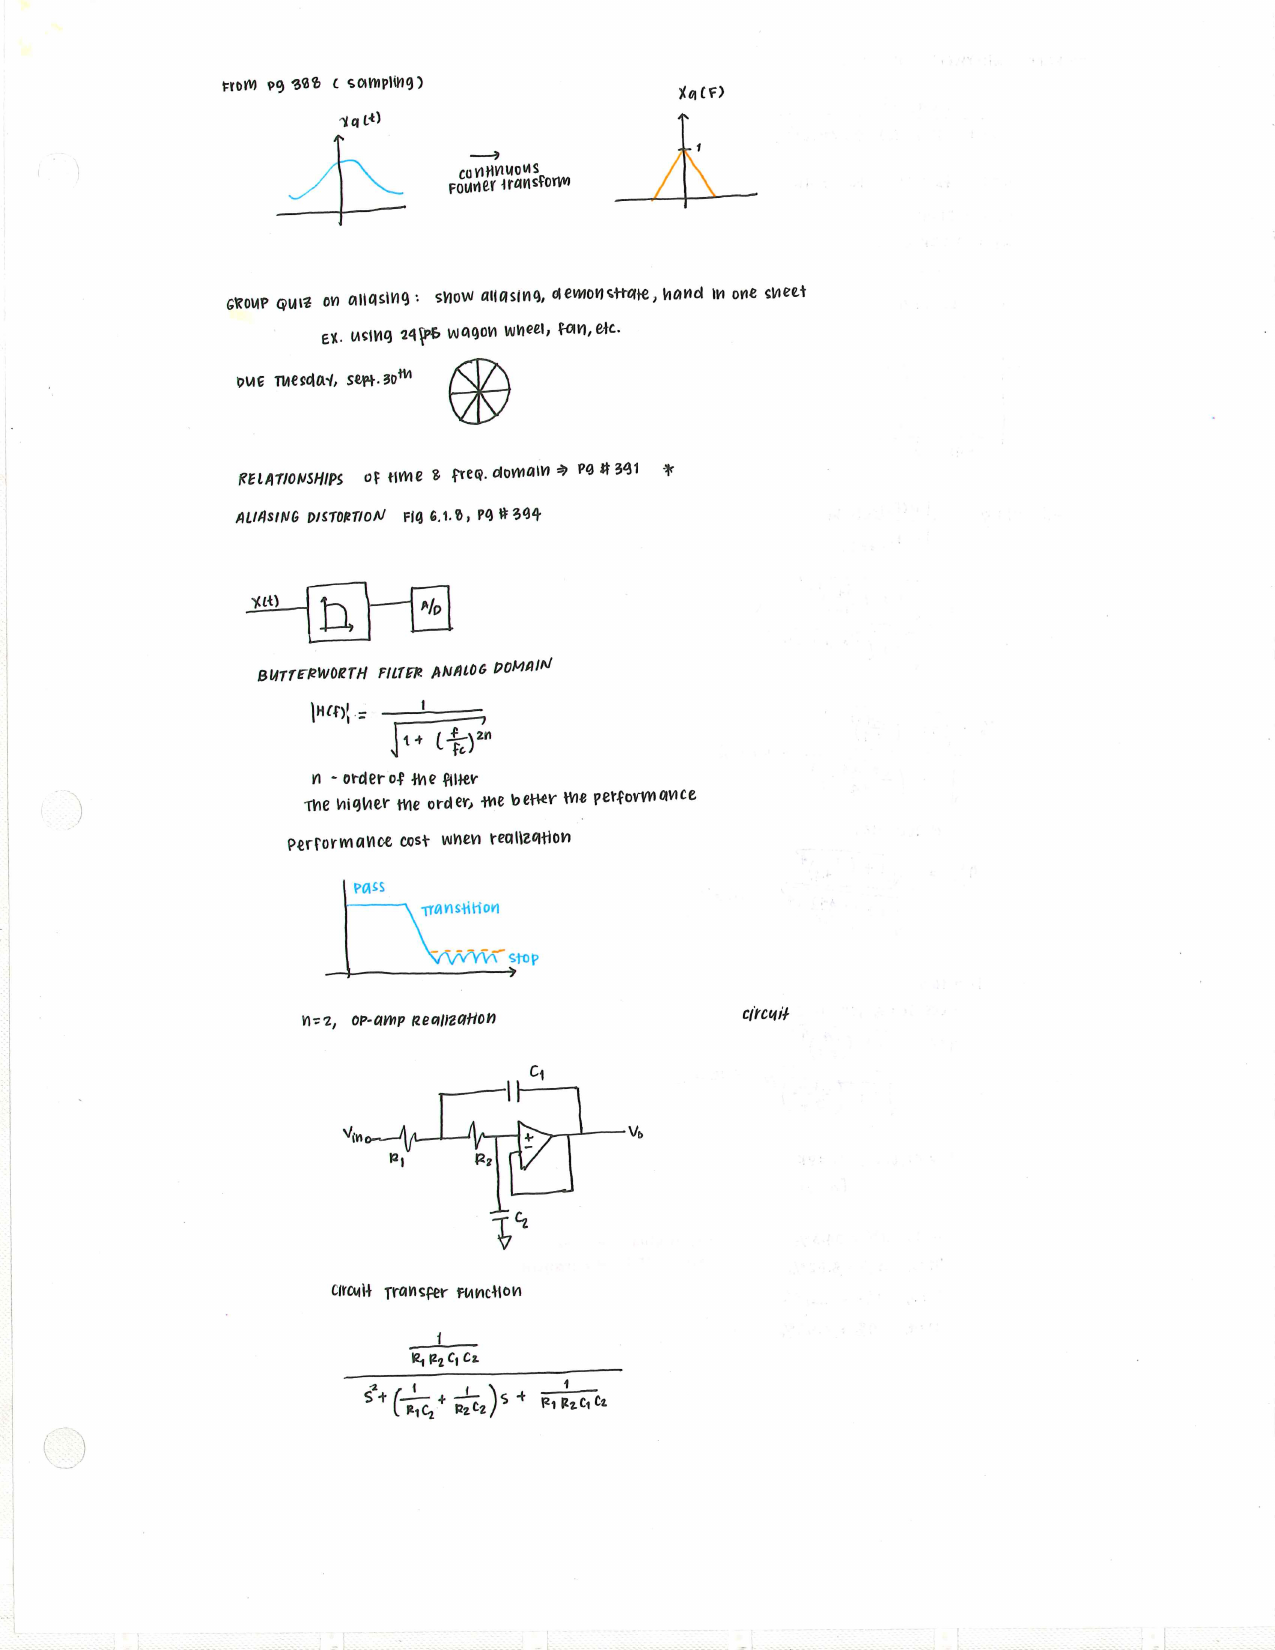 From pg 388 ( sampling)
xa(t)
Xa(F)
1
→
continuous
Fourier transform
GROUP QUIZ on aliasing: show aliasing, demonstrate, hand in one sheet
EX. using 24fps wagon wheel, fan, etc.
DUE Tuesday, sept. 30th
RELATIONSHIPS of time & freq. domain ⇒ pg # 391 *
ALIASING DISTORTION Fig 6.1.8, pg # 394
X(t)
A/D
BUTTERWORTH FILTER ANALOG DOMAIN
|H(f)| = 1 / √(1 + (f/fc)^2n)
n - order of the filter
The higher the order, the better the performance
Performance cost when realization
pass
Transtition
stop
n=2, op-amp Realization
circuit
C1
Vin
R1
R2
+
-
Vo
C2
circuit Transfer Function
1
R1 R2 C1 C2
s² + (1/R1C2 + 1/R2C2) s + 1/R1 R2 C1 C2